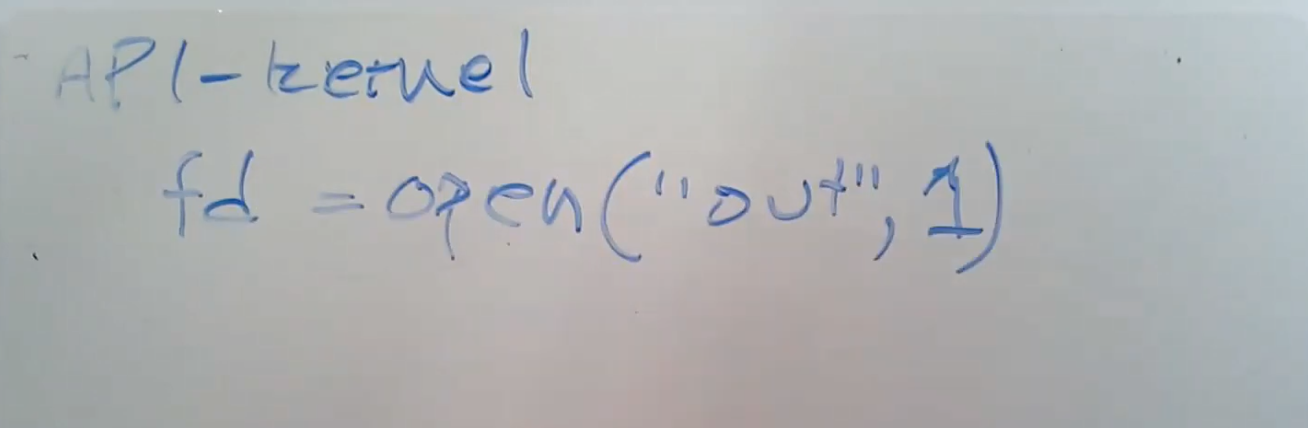 API-kernel
fd = open("out", 1)